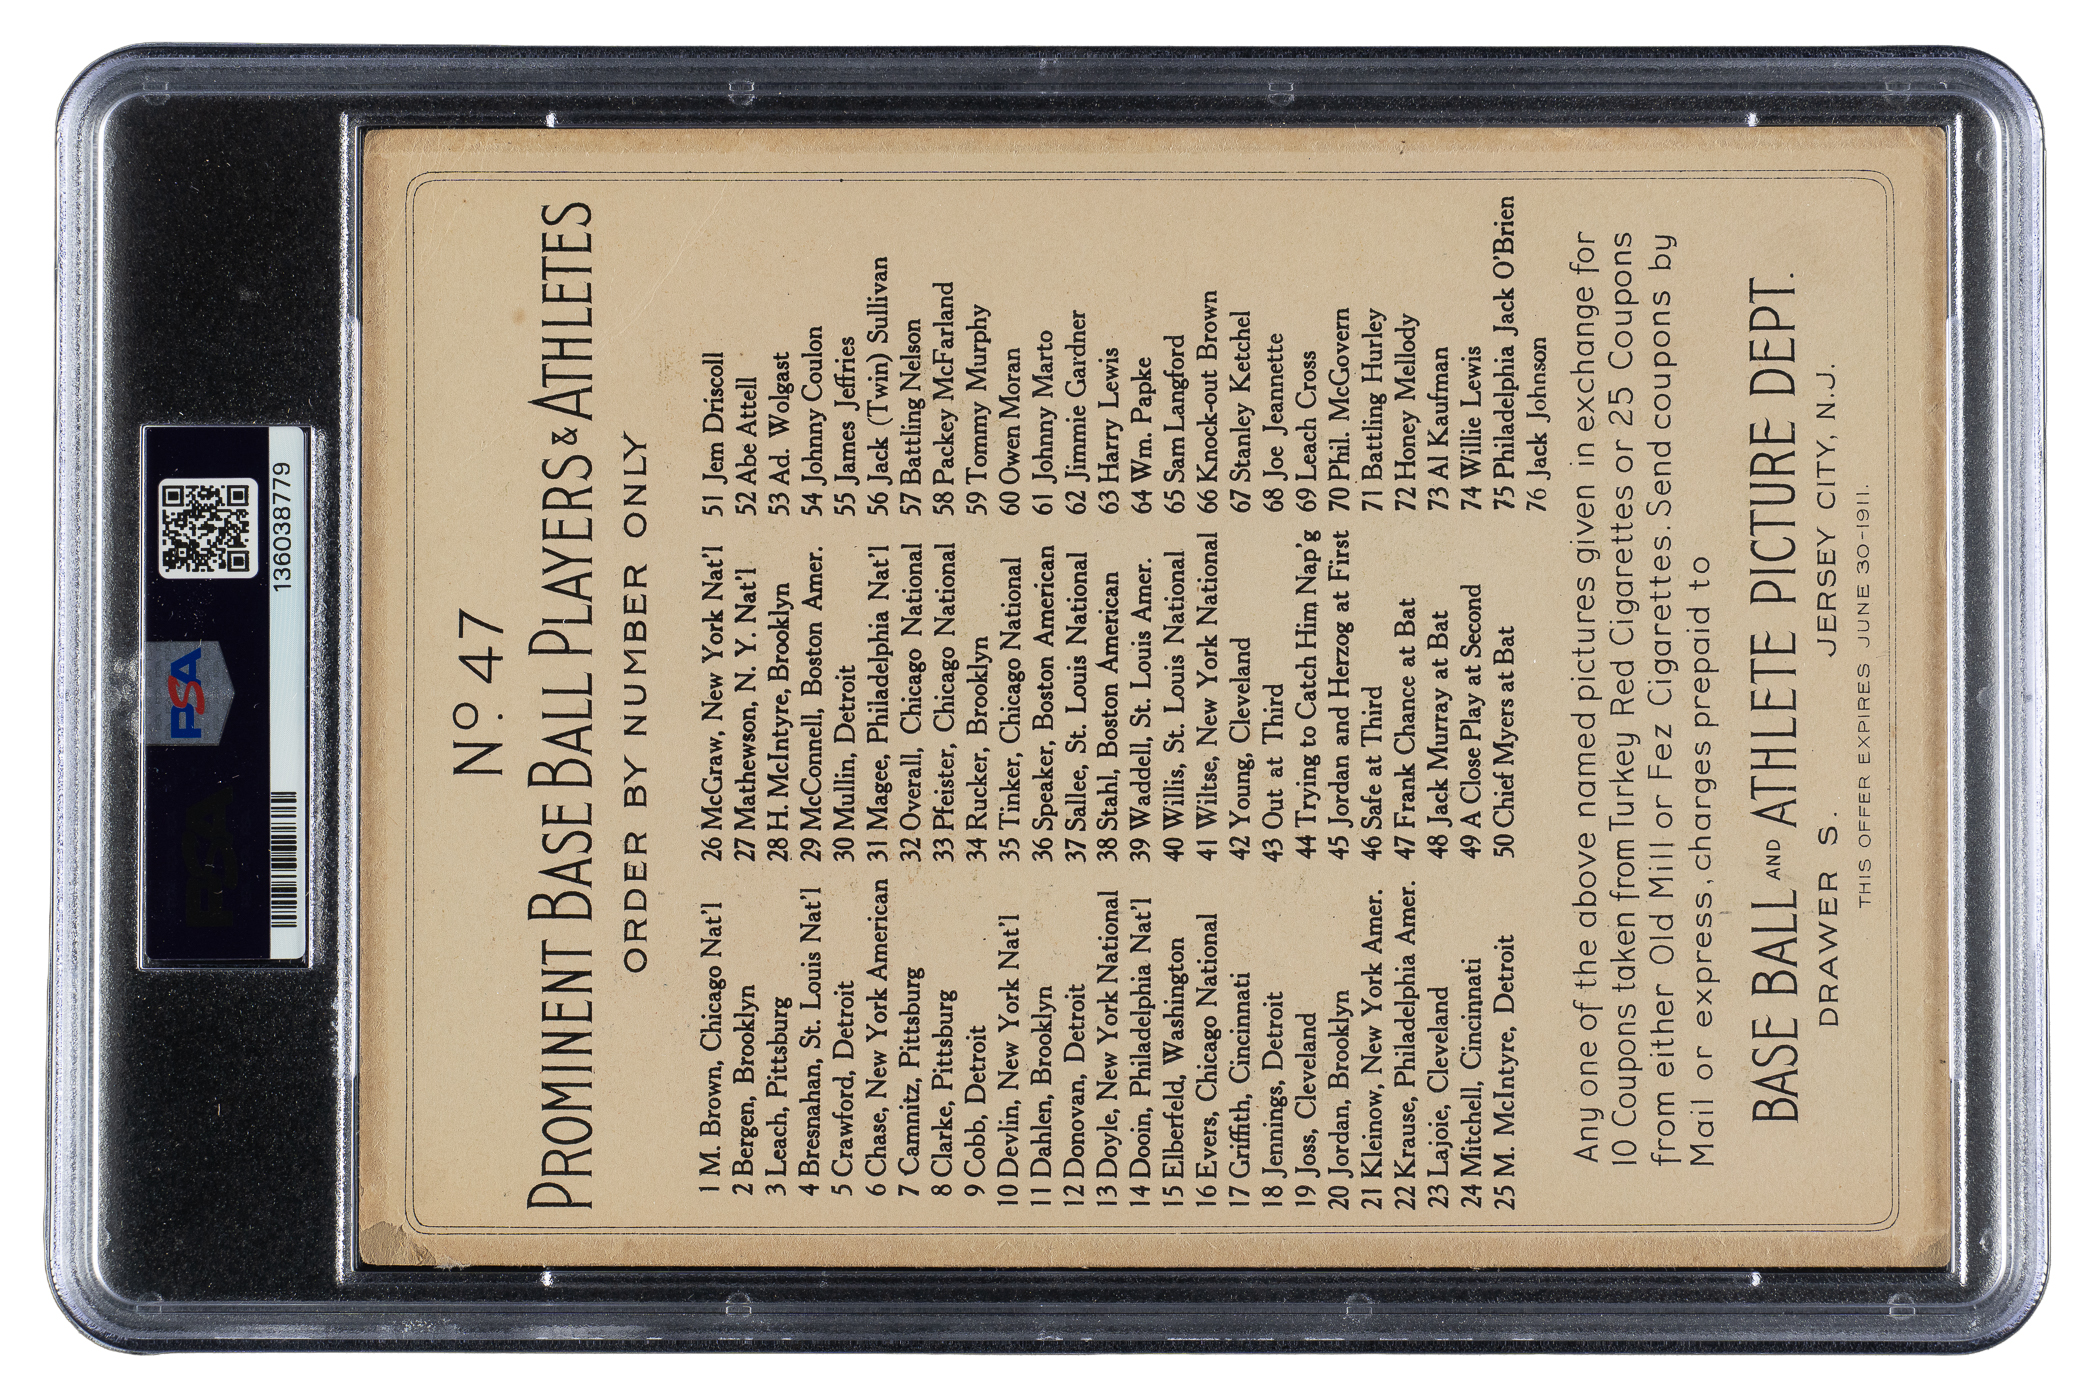 PSA
136038779
Nº. 47
PROMINENT BASE BALL PLAYERS & ATHLETES
ORDER BY NUMBER ONLY
1 M. Brown, Chicago Nat'l
2 Bergen, Brooklyn
3 Leach, Pittsburg
4 Bresnahan, St. Louis Nat'l
5 Crawford, Detroit
6 Chase, New York American
7 Camnitz, Pittsburg
8 Clarke, Pittsburg
9 Cobb, Detroit
10 Devlin, New York Nat'l
11 Dahlen, Brooklyn
12 Donovan, Detroit
13 Doyle, New York National
14 Dooin, Philadelphia Nat'l
15 Elberfeld, Washington
16 Evers, Chicago National
17 Griffith, Cincinnati
18 Jennings, Detroit
19 Joss, Cleveland
20 Jordan, Brooklyn
21 Kleinow, New York Amer.
22 Krause, Philadelphia Amer.
23 Lajoie, Cleveland
24 Mitchell, Cincinnati
25 M. McIntyre, Detroit
26 McGraw, New York Nat'l
27 Mathewson, N. Y. Nat'l
28 H. McIntyre, Brooklyn
29 McConnell, Boston Amer.
30 Mullin, Detroit
31 Magee, Philadelphia Nat'l
32 Overall, Chicago National
33 Pfeister, Chicago National
34 Rucker, Brooklyn
35 Tinker, Chicago National
36 Speaker, Boston American
37 Sallee, St. Louis National
38 Stahl, Boston American
39 Waddell, St. Louis Amer.
40 Willis, St. Louis National
41 Wiltse, New York National
42 Young, Cleveland
43 Out at Third
44 Trying to Catch Him Nap'g
45 Jordan and Herzog at First
46 Safe at Third
47 Frank Chance at Bat
48 Jack Murray at Bat
49 A Close Play at Second
50 Chief Myers at Bat
51 Jem Driscoll
52 Abe Attell
53 Ad. Wolgast
54 Johnny Coulon
55 James Jeffries
56 Jack (Twin) Sullivan
57 Battling Nelson
58 Packey McFarland
59 Tommy Murphy
60 Owen Moran
61 Johnny Marto
62 Jimmie Gardner
63 Harry Lewis
64 Wm. Papke
65 Sam Langford
66 Knock-out Brown
67 Stanley Ketchel
68 Joe Jeannette
69 Leach Cross
70 Phil. McGovern
71 Battling Hurley
72 Honey Mellody
73 Al Kaufman
74 Willie Lewis
75 Philadelphia Jack O'Brien
76 Jack Johnson
Any one of the above named pictures given in exchange for
10 Coupons taken from Turkey Red Cigarettes or 25 Coupons
from either Old Mill or Fez Cigarettes. Send coupons by
Mail or express, charges prepaid to
BASE BALL AND ATHLETE PICTURE DEPT.
DRAWER S. JERSEY CITY, N.J.
THIS OFFER EXPIRES JUNE 30-1911.